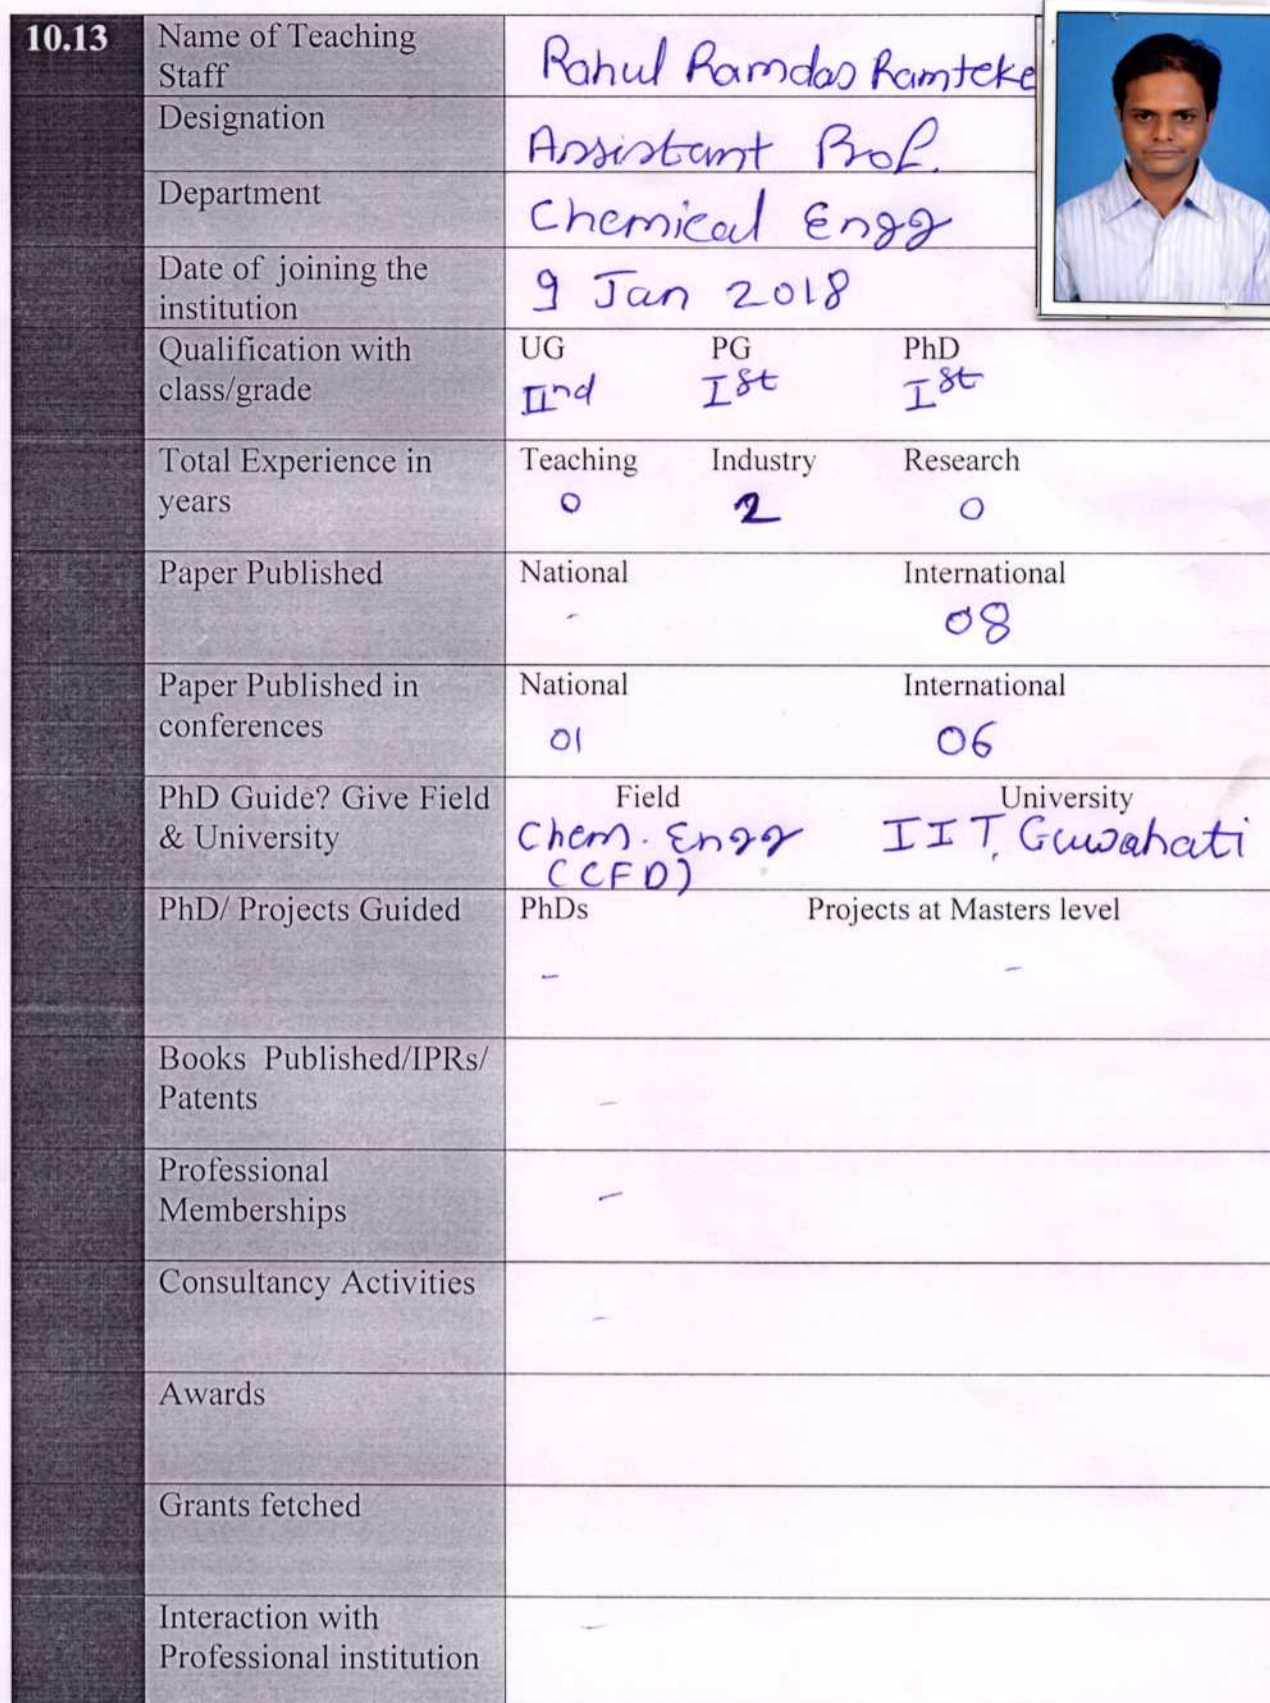 10.13
Name of Teaching
Staff
Rahul Ramdas Ramteke
Designation
Assistant Prof.
Department
Chemical Engg
Date of joining the
institution
9 Jan 2018
Qualification with
class/grade
UG PG PhD
IInd Ist Ist
Total Experience in
years
Teaching Industry Research
0 2 0
Paper Published
National International
- 08
Paper Published in
conferences
National International
01 06
PhD Guide? Give Field
& University
Field University
Chem. Engg IIT, Guwahati
(CFD)
PhD/ Projects Guided
PhDs Projects at Masters level
- -
Books Published/IPRs/
Patents
-
Professional
Memberships
-
Consultancy Activities
-
Awards
Grants fetched
Interaction with
Professional institution
-